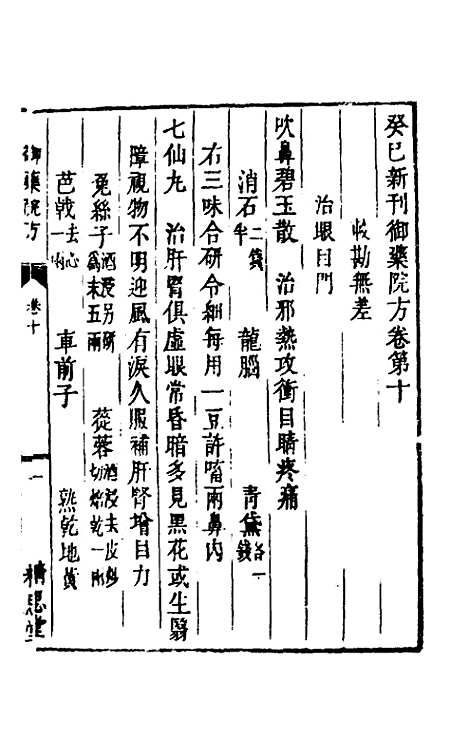 癸巳新刊御藥院方卷第十
收勘無差
治眼目門
吹鼻碧玉散　治邪熱攻衝目睛疼痛
消石二錢半　龍腦　青黛各一錢
右三味合研令細每用一豆許㗜兩鼻內
七仙丸　治肝腎俱虛眼常昏暗多見黑花或生翳
障視物不明迎風有淚久服補肝腎增目力
菟絲子酒浸另研為末五兩　蓯蓉酒浸去皮切焙乾一兩
芭戟去心一兩　車前子　熟乾地黃
御藥院方　卷十　一　精思堂